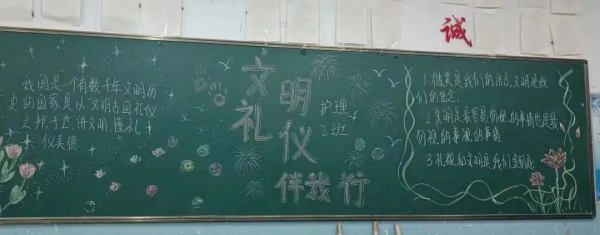 诚
我国是一个有数千年文明历
史的国家,是以"文明古国礼仪
之邦于世,讲文明,懂礼
仪美德
文明
礼仪
伴我行
护理
2班
1.微笑是我们的语言,文明是我
们的信念
2.文明是最容易
忽视的事情
3.礼貌和文明是我们